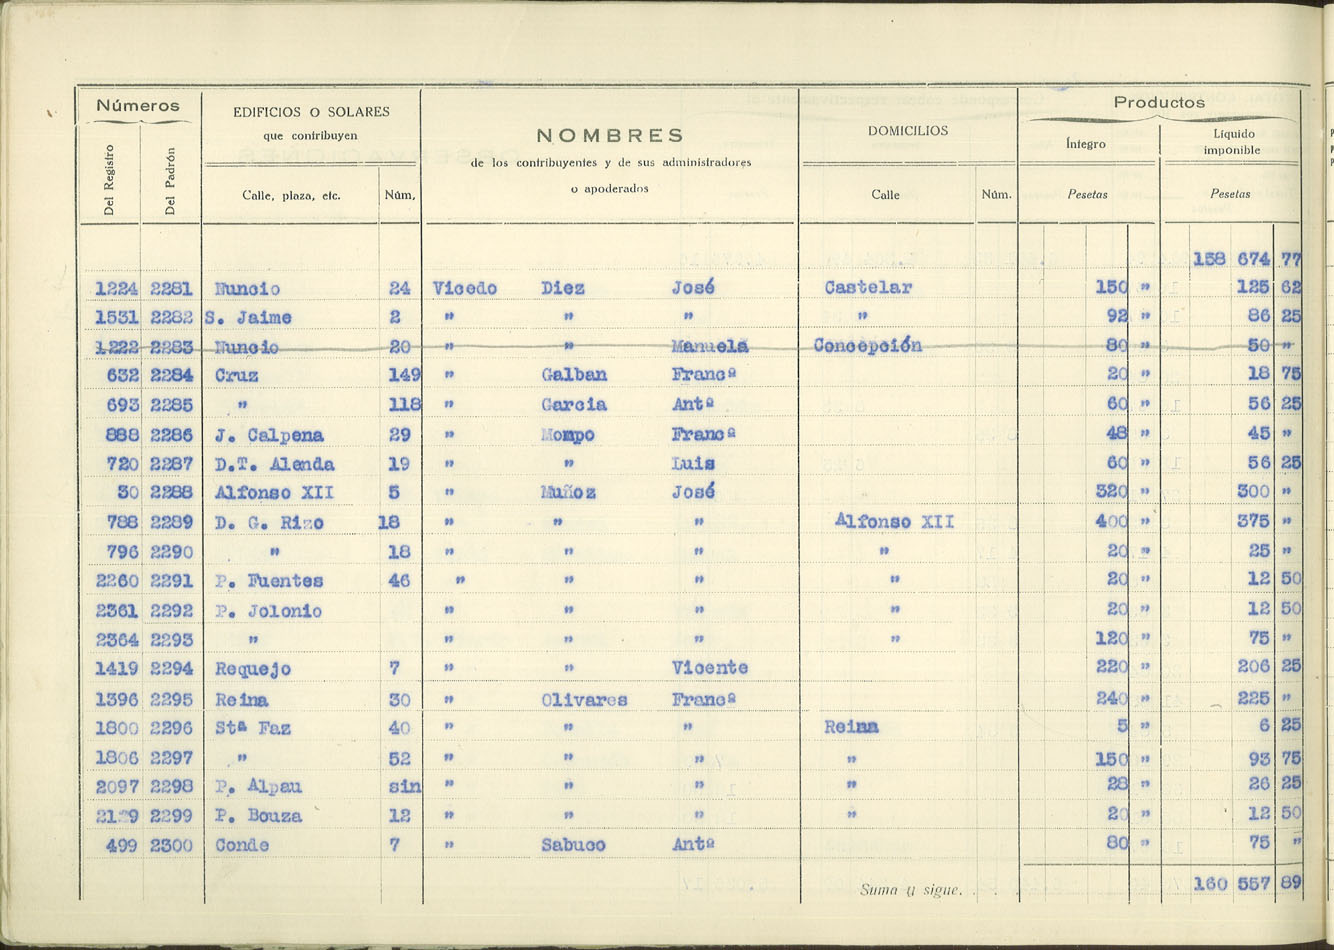 Números
EDIFICIOS O SOLARES
que contribuyen
NOMBRES
de los contribuyentes y de sus administradores
o apoderados
DOMICILIOS
Productos
Íntegro
Líquido
imponible
Del Registro
Del Padrón
Calle, plaza, etc.
Núm,
Calle
Núm.
Pesetas
Pesetas
158 674 77
1224 2281 Nuncio 24 Vicedo Diez José Castelar 150 " 125 62
1531 2282 S. Jaime 2 " " " " 92 " 86 25
1222 2283 Nuncio 20 " " Manuela Concepción 80 " 50 "
632 2284 Cruz 149 " Galban Francª 20 " 18 75
693 2285 " 118 " Garcia Antª 60 " 56 25
888 2286 J. Calpena 29 " Mompo Francª 48 " 45 "
720 2287 D.T. Alenda 19 " " Luis 60 " 56 25
30 2288 Alfonso XII 5 " Muñoz José 320 " 300 "
788 2289 D. G. Rizo 18 " " " Alfonso XII 400 " 375 "
796 2290 " 18 " " " " 20 " 25 "
2260 2291 P. Fuentes 46 " " " " 20 " 12 50
2361 2292 P. Jolonio " " " " 20 " 12 50
2364 2293 " " " " " 120 " 75 "
1419 2294 Requejo 7 " " Vicente 220 " 206 25
1396 2295 Reina 30 " Olivares Francª 240 " 225 "
1800 2296 Stª Faz 40 " " " Reina 5 " 6 25
1806 2297 " 52 " " " " 150 " 93 75
2097 2298 P. Alpau sin " " " " 28 " 26 25
2299 P. Bouza 12 " " " " 20 " 12 50
499 2300 Conde 7 " Sabuco Antª 80 " 75 "
Suma y sigue. . . 160 557 89